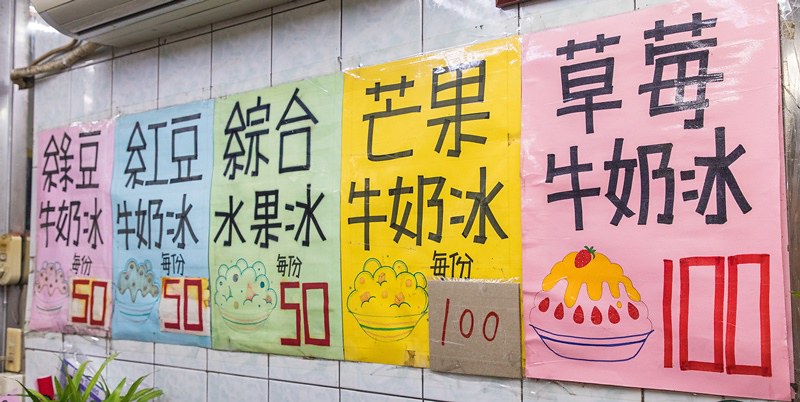 綠豆
牛奶冰
每份
50
紅豆
牛奶冰
每份
50
綜合
水果冰
每份
50
芒果
牛奶冰
每份
100
草莓
牛奶冰
100